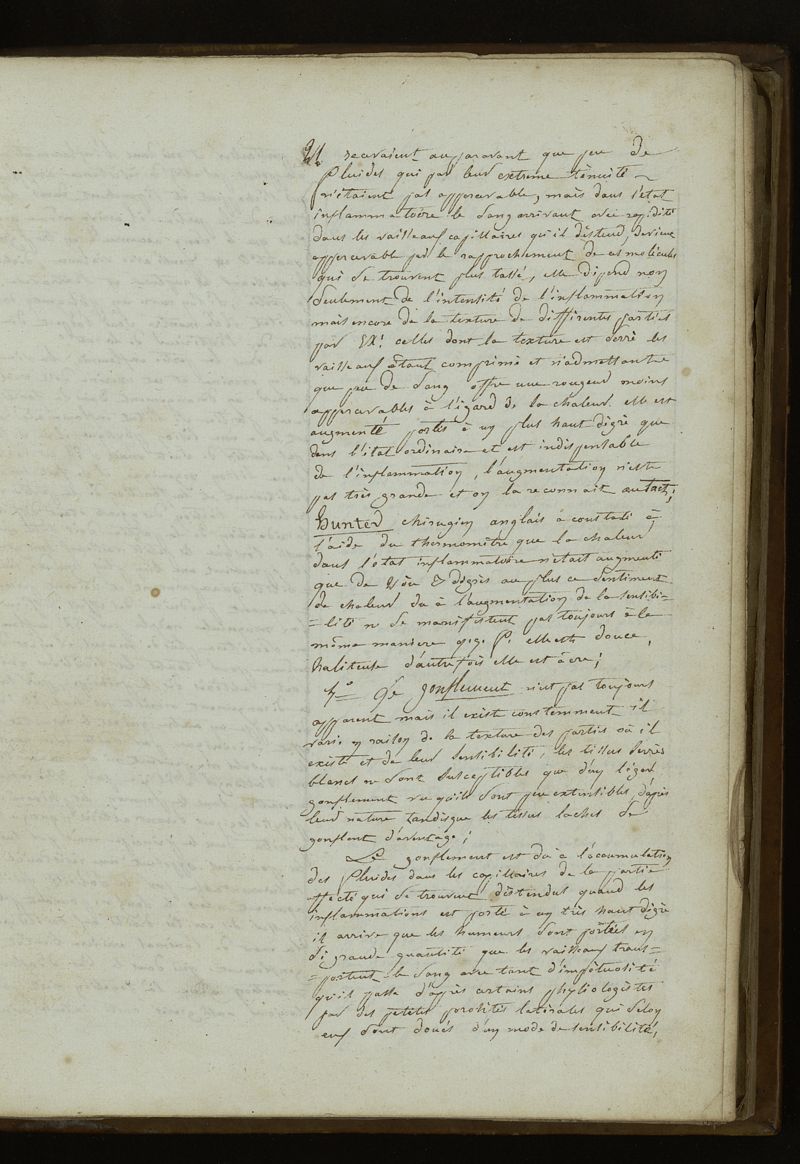 recevaient auparavant que peu de
fluides qui par leur extreme tenuité
n'etaient pas appercevable, mais dans l'etat
inflammatoire le sang arrivant avec rapidité
dans les vaisseaux capillaires qu'il distend, devient
appercevable par le rapprochement de ces molécules
qui se trouvent plus tassé, elle dépend non
seulement de l'intensité de l'inflammation
mais encore de la texture de différentes parties
par EX! celles dont la texture est serré les
vaisseaux étant comprimé et n'admettant
que peu de sang offre une rougeur moins
appercevables à l'égard de la chaleur elle est
augmenté portés à un plus haut dégré que
dans l'état ordinaire et est indispensable
de l'inflammation, l'augmentation n'est
pas très grande et on la reconnait au tact;
Hunter chirugien anglais à constaté à
l'aide du thermomètre que la chaleur
dans l'état inflammatoire n'était augmenté
que de dégrès au plus ce sentiment
de chaleur du à l'augmentation de la sensibi=
=lité ne se manifestent pas toujours de la
même maniere q.q. f. elle est douce,
haliteuse d'autrefois elle est âcre;
Le gonflement n'est pas toujours
apparent mais il existe constemment il
varie en raison de la texture des parties où il
existe et de leur sensibilité, les tissus serrés
blancs ne sont susceptibles que d'un léger
gonflement vu qu'ils sont peu extensibles, d'après
leur nature tandisque les tissus laches se
gonflent d'avantage;
Le gonflement est du à l'accumulation
des fluides dans les capillaires de la partie
affecté qui se trouvent distendus quand les
inflammations est porté à un très haut dégré
il arrive que les humeurs sont portées en
si grande quantité que les vaisseaux trans=
=portent le sang avec tant d'impétuosité
qu'il passe d'après certains physiologistes
par des petites porosités latérales qui selon
eux sont doués d'un mode de sensibilité,